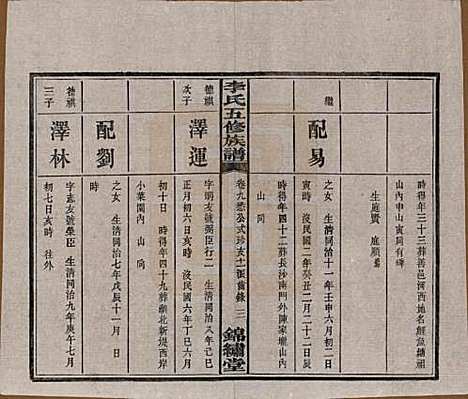 時得年三十三葬善邑河西地名鯉魚塘祖
山內申山寅向有碑
生庭賢　庭順
繼
配易
之女　生清同治十一年壬申六月初二日
寅時　沒民國二年癸丑二月二十二日亥
時得年四十二葬長沙南門外陳家壠山內
山向
李氏五修族譜
卷九
錦繡堂
德祺
次子
澤運
字炳友號弼臣行二　生清同治八年己巳
正月初六日亥時　沒民國六年丁巳六月
初十日　時得年四十九葬湖北新堤西岸
小葉閘內　山　向
配劉
之女　生清同治七年戊辰十一月　日
時
德祺
三子
澤林
字憲友號榮臣　生清同治九年庚午七月
初七日亥時　往外